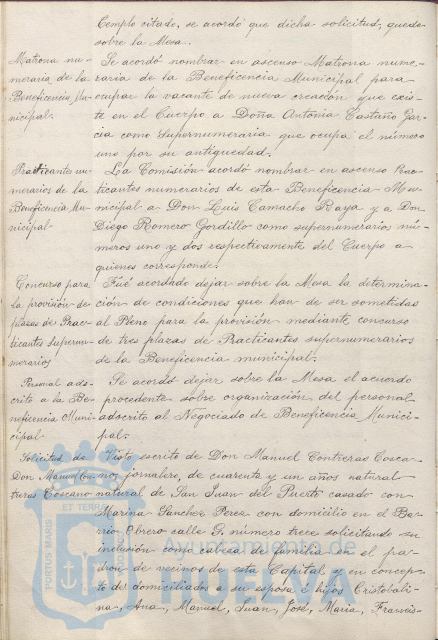 Templo citado, se acordó que dicha solicitud, quede
sobre la Mesa.
Matrona nu-
meraria de la
Beneficencia Mu-
nicipal.
Se acordó nombrar en ascenso Matrona nume-
raria de la Beneficencia Municipal para
ocupar la vacante de nueva creación que exis-
te en el Cuerpo a Doña Antonia Castaño Gar-
cia como Supernumeraria que ocupa el número
uno por su antiguedad.
Practicantes nu-
merarios de la
Beneficencia Mu-
nicipal
La Comisión acordó nombrar en ascenso Prac-
ticantes numerarios de esta Beneficencia Mu-
nicipal a Don Luis Camacho Raya y a Don
Diego Romero Gordillo como supernumerarios nú-
meros uno y dos respectivamente del Cuerpo a
quienes corresponde.
Concurso para
la provisión de
plazas de Prac-
ticantes Supernu-
merarios
Fué acordado dejar sobre la Mesa la determina-
ción de condiciones que han de ser sometidas
al Pleno para la provisión mediante concurso
de tres plazas de Practicantes supernumerarios
de la Beneficencia municipal.
Personal ads-
crito a la Be-
neficencia Muni-
cipal
Se acordó dejar sobre la Mesa el acuerdo
procedente sobre organización del personal
adscrito al Negociado de Beneficencia Munici-
pal.
Solicitud de
Don Manuel Con-
treras Coscano
Visto escrito de Don Manuel Contreras Cosca-
no, jornalero, de cuarenta y un años natural
natural de San Juan del Puerto casado con
Marina Sanchez Perea con domicilio en el Ba-
rrio Obrero calle G. número trece solicitando su
inclusión como cabeza de familia en el pa-
drón de vecinos de esta Capital, y en concep-
to de domiciliados a su esposa e hijos Cristobali-
na, Ana, Manuel, Juan, José, Maria, Francis-
PORTUS MARIS
ET TERRAE
Ayuntamiento de
HUELVA